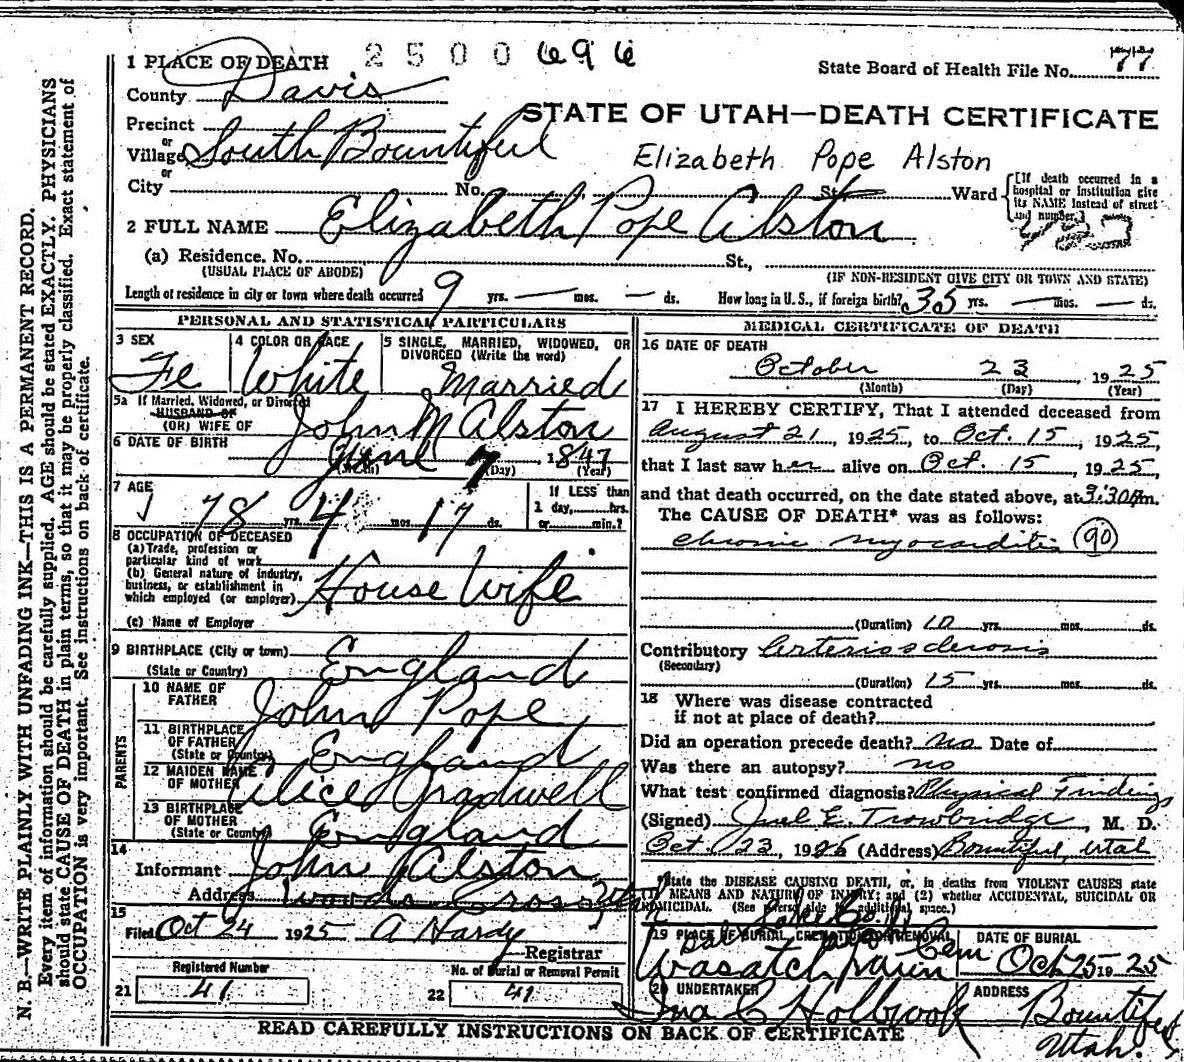 N. B.—WRITE PLAINLY WITH UNFADING INK—THIS IS A PERMANENT RECORD.
Every item of information should be carefully supplied. AGE should be stated EXACTLY. PHYSICIANS
should state CAUSE OF DEATH in plain terms, so that it may be properly classified. Exact statement of
OCCUPATION is very important. See instructions on back of certificate.
2500696
State Board of Health File No. 77
1 PLACE OF DEATH
County Davis
STATE OF UTAH—DEATH CERTIFICATE
Precinct
or
Village South Bountiful
Elizabeth Pope Alston
or
City No. St. Ward
[If death occurred in a
hospital or institution give
its NAME instead of street
and number.]
2 FULL NAME Elizabeth Pope Alston
(a) Residence. No. St.,
(USUAL PLACE OF ABODE) (IF NON-RESIDENT GIVE CITY OR TOWN AND STATE)
Length of residence in city or town where death occurred 9 yrs. — mos. — ds. How long in U. S., if foreign birth? 35 yrs. — mos. — ds.
PERSONAL AND STATISTICAL PARTICULARS
3 SEX Fe
4 COLOR OR RACE White
5 SINGLE, MARRIED, WIDOWED, OR
DIVORCED (Write the word)
Married
5a If Married, Widowed, or Divorced
HUSBAND OF
(OR) WIFE OF John M Alston
6 DATE OF BIRTH June 7 1847
(Month) (Day) (Year)
7 AGE
78 yrs. 4 mos. 17 ds.
If LESS than
1 day, hrs.
or min.?
8 OCCUPATION OF DECEASED
(a) Trade, profession or
particular kind of work
(b) General nature of industry,
business, or establishment in
which employed (or employer) House Wife
(c) Name of Employer
9 BIRTHPLACE (City or town)
(State or Country) England
PARENTS
10 NAME OF
FATHER John Pope
11 BIRTHPLACE
OF FATHER
(State or Country) England
12 MAIDEN NAME
OF MOTHER Alice Gradwell
13 BIRTHPLACE
OF MOTHER
(State or Country) England
14
Informant John Alston
Address Woods Cross Utah
15
Filed Oct 24 1925 A Hardy
Registrar
Registered Number
21 41
No. of Burial or Removal Permit
22 41
MEDICAL CERTIFICATE OF DEATH
16 DATE OF DEATH
October 23, 1925
(Month) (Day) (Year)
17 I HEREBY CERTIFY, That I attended deceased from
August 21, 1925, to Oct. 15, 1925,
that I last saw her alive on Oct. 15, 1925,
and that death occurred, on the date stated above, at 3:30 Pm.
The CAUSE OF DEATH* was as follows:
chronic myocarditis (90)
(Duration) 10 yrs. mos. ds.
Contributory Arteriosclerosis
(Secondary)
(Duration) 15 yrs. mos. ds.
18 Where was disease contracted
if not at place of death?
Did an operation precede death? no Date of
Was there an autopsy? no
What test confirmed diagnosis? Physical Findings
(Signed) Joel E. Trowbridge, M. D.
Oct. 23, 1926 (Address) Bountiful, Utah
State the DISEASE CAUSING DEATH, or, in deaths from VIOLENT CAUSES state
MEANS AND NATURE OF INJURY; and (2) whether ACCIDENTAL, SUICIDAL OR
HOMICIDAL. (See reverse side for additional space.)
19 PLACE OF BURIAL, CREMATION OR REMOVAL
Wasatch Lawn Cem
DATE OF BURIAL
Oct 25 1925
20 UNDERTAKER
Holbrook
ADDRESS
Bountiful
Utah.
READ CAREFULLY INSTRUCTIONS ON BACK OF CERTIFICATE